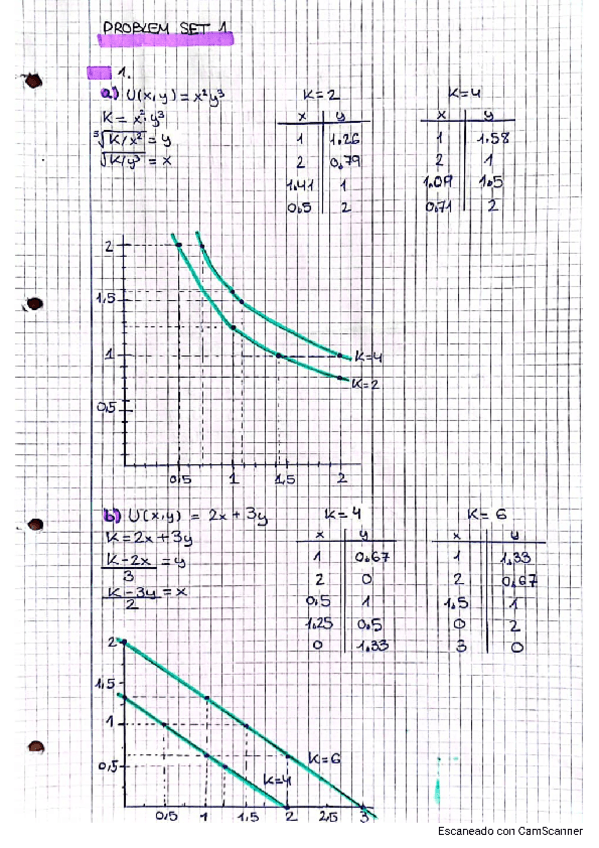 PROBLEM SET 1
1.
a) U(x,y) = x²y³
K = x²·y³
³√K/x² = y
√K/y³ = x
K=2
x y
1 1.26
2 0.79
1.41 1
0.5 2
K=4
x y
1 1.58
2 1
1.09 1.5
0.71 2
2
1,5
1
0,5
K=4
K=2
0,5 1 1,5 2
b) U(x,y) = 2x + 3y
K=2x+3y
K-2x/3 = y
K-3y/2 = x
K=4
x y
1 0.67
2 0
0.5 1
1.25 0.5
0 1.33
K=6
x y
1 1.33
2 0.67
1.5 1
0 2
3 0
2
1,5
1
0,5
K=6
K=4
0,5 1 2 2,5 3
Escaneado con CamScanner